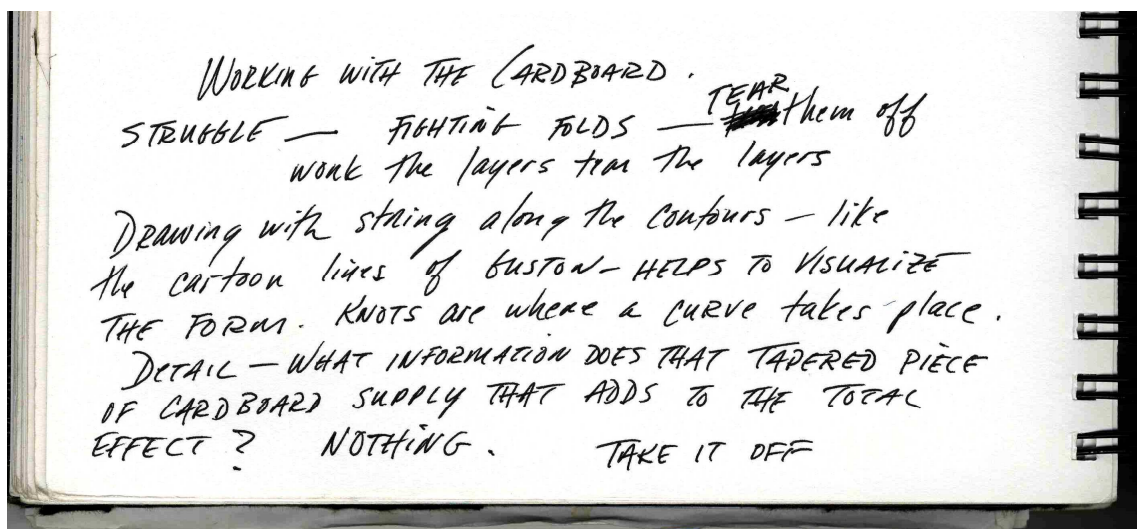 WORKING WITH THE CARDBOARD.
STRUGGLE — FIGHTING FOLDS — TEAR them off
work the layers tear the layers
Drawing with string along the contours — like
the cartoon lines of GUSTON — HELPS TO VISUALIZE
THE FORM. KNOTS are where a CURVE takes place.
DETAIL — WHAT INFORMATION DOES THAT TAPERED PIECE
OF CARDBOARD SUPPLY THAT ADDS TO THE TOTAL
EFFECT? NOTHING. TAKE IT OFF